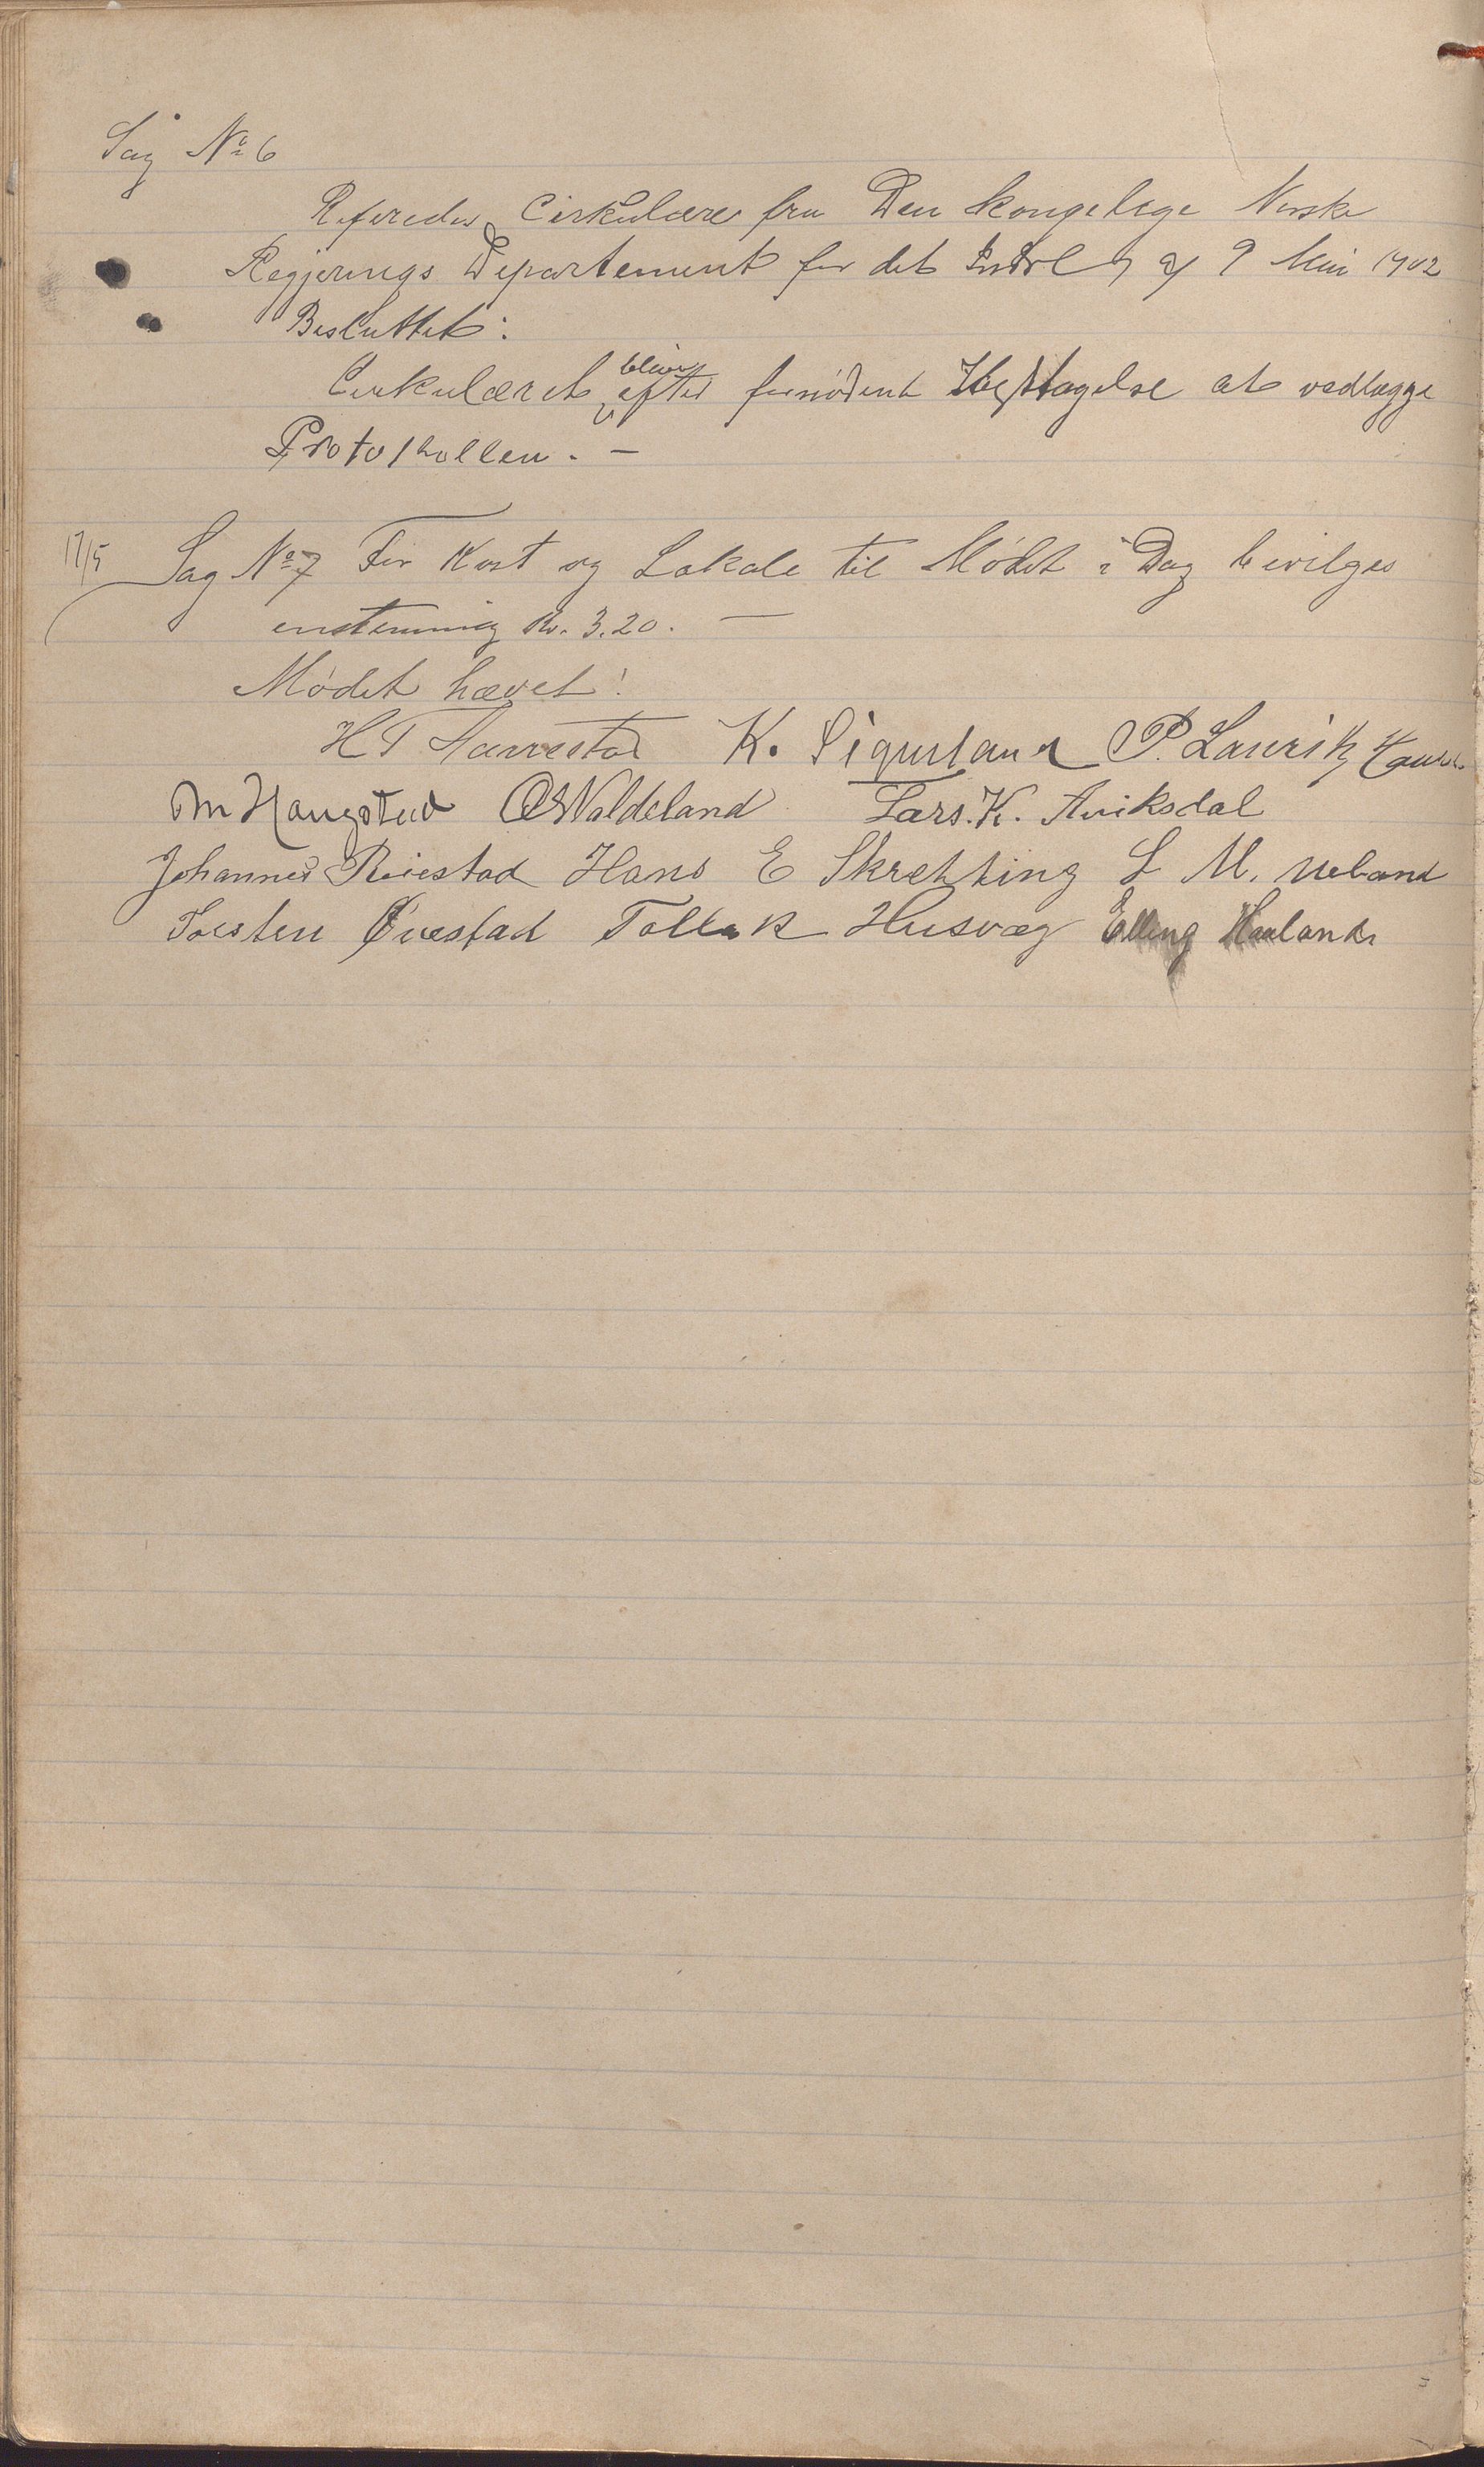 Sag No 6
Refereredes Cirkulære fra Den kongelige Norske
Regjerings Departement for det Indre af 9 Mai 1902
Besluttet:
Cirkulæret bliver efter fornødent Iagttagelse at vedlægge
Protokollen. -
17/5 Sag No 7 For Kost og Lokale til Mødet i Dag bevilges
enstemmig Kr. 3.20. -
Mødet hævet!
H T K. P. Lauritz
OM Haugsted Valdeland Lars. K. Aniksdal
Johannes Reiestad Hans E Skretting L M.
Torsten Tollak Husvæg Elling Haaland